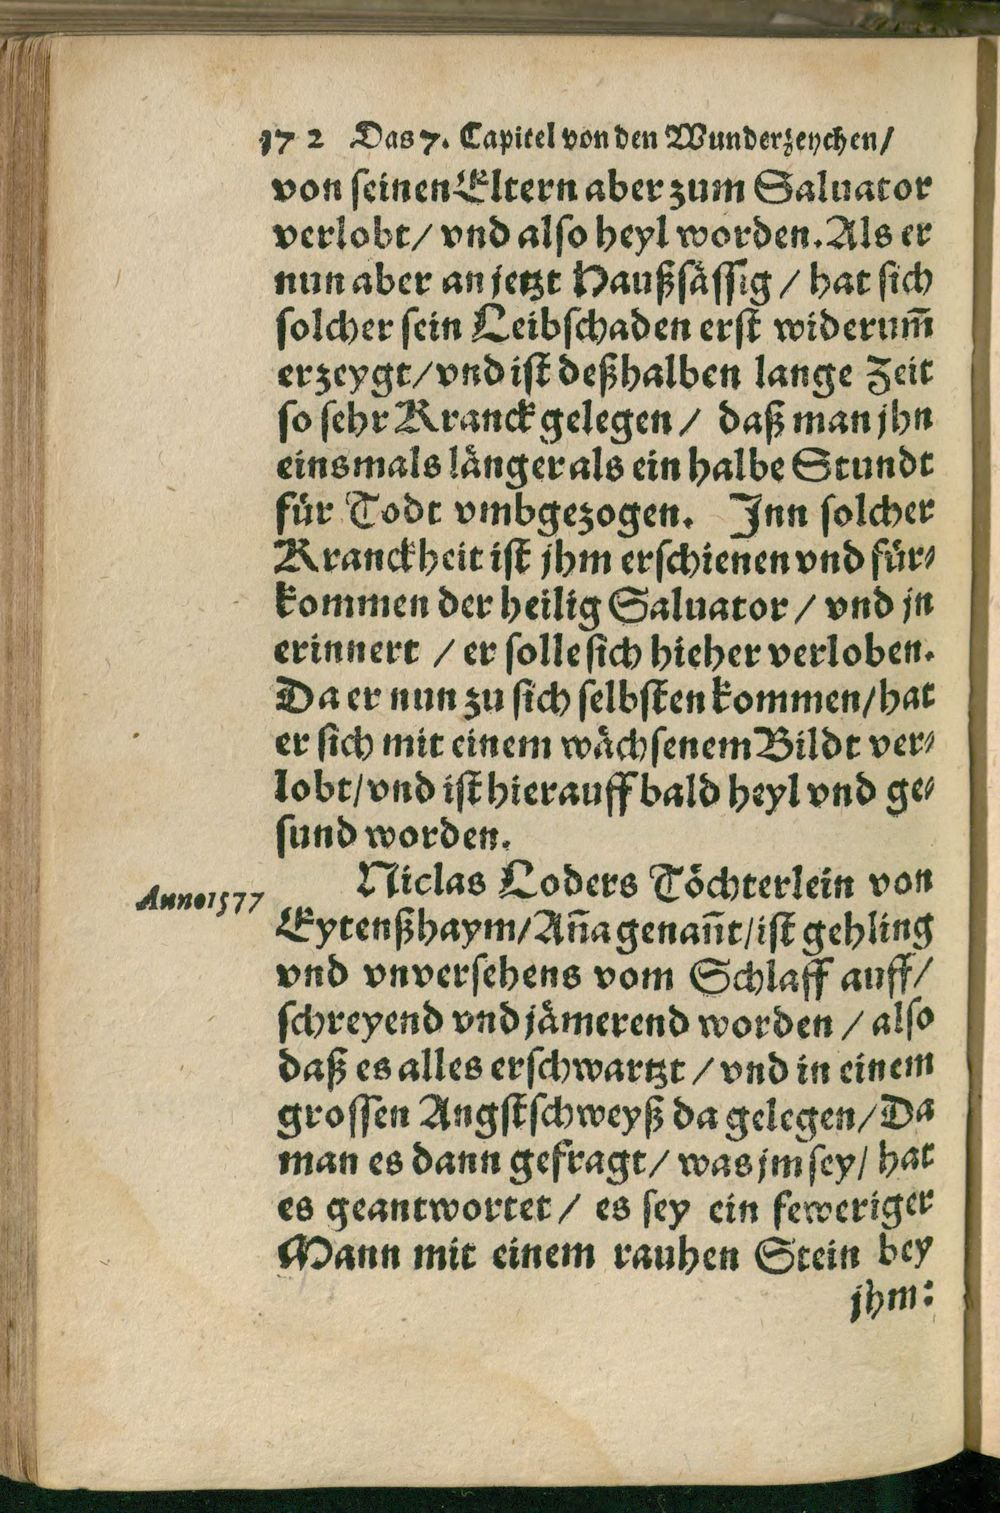 172 Das 7. Capitel von den Wunderzeychen/
von seinen Eltern aber zum Saluator
verlobt/ vnd also heyl worden. Als er
nun aber an jetzt Haußsässig / hat sich
solcher sein Leibschaden erst widerum̃
erzeygt/ vnd ist deßhalben lange Zeit
so sehr Kranck gelegen / daß man jhn
einsmals länger als ein halbe Stundt
für Todt vmbgezogen. Inn solcher
Kranckheit ist jhm erschienen vnd für⸗
kommen der heilig Saluator / vnd jn
erinnert / er solle sich hieher verloben.
Da er nun zu sich selbsten kommen/ hat
er sich mit einem wächsenem Bildt ver⸗
lobt/ vnd ist hierauff bald heyl vnd ge⸗
sund worden.
Niclas Loders Töchterlein von
Anno 1577
Eytenßhaym/ Aña genañt/ ist gehling
vnd vnversehens vom Schlaff auff/
schreyend vnd jämerend worden / also
daß es alles erschwartzt / vnd in einem
grossen Angstschweyß da gelegen/ Da
man es dann gefragt/ was jm sey/ hat
es geantwortet / es sey ein feweriger
Mann mit einem rauhen Stein bey
jhm: